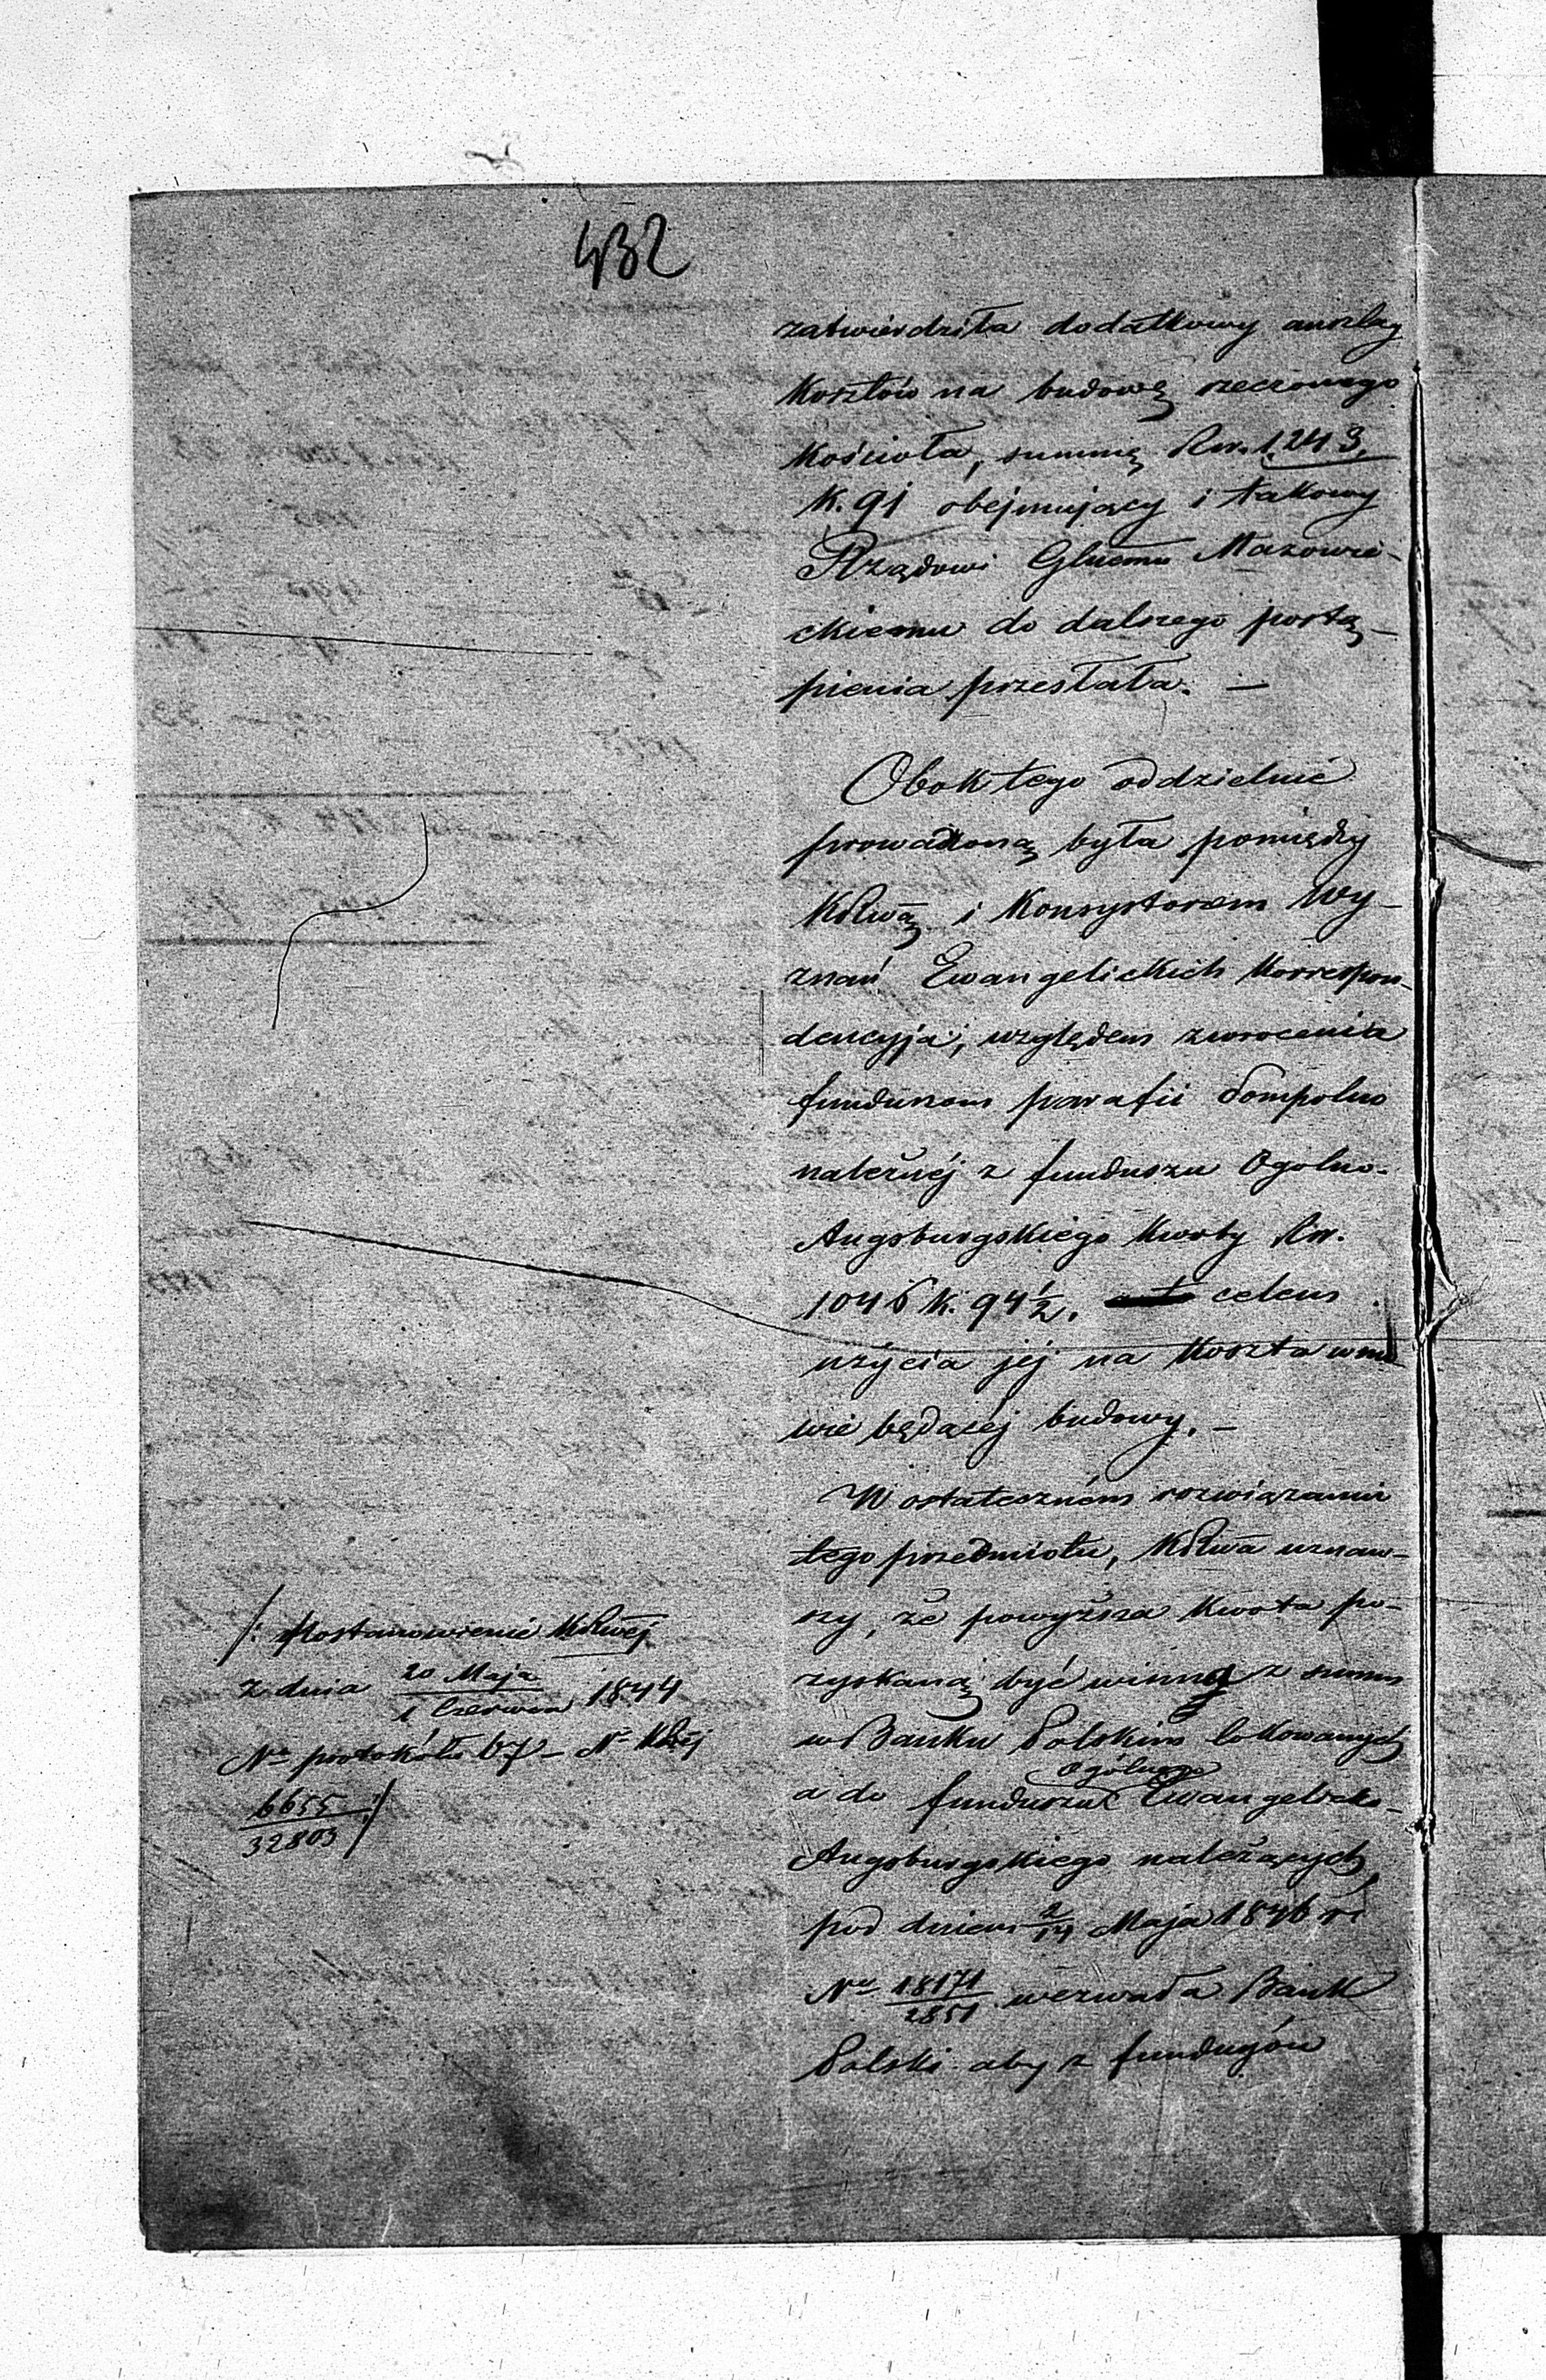 432
zatwierdziła dodatkowy anszlag
Kosztów na budowę rzeczonego
Kościoła, summę Rsr. 1,243.
K. 91 obejmujący i takowy
Rządowi Glnemu Mazowie-
ckiemu do dalszego postą-
pienia przesłała. —
Obok tego oddzielnie
prowadzoną była pomiędzy
KRwą i Konsystorzem Wy-
znań Ewangelickich Korrespon-
dencyja, względem zwrocenia
funduszom parafii Sompolno
należnéj z funduszu Ogolno-
Augsburgskiego Kwoty Rsr.
1046 K. 94½. celem
użycia jéj na Koszta w mo
wie będacéj budowy. —
W ostateczném rozwiązaniu
tego przedmiotu, KRwa uznaw-
szy, że powyższa Kwota po-
zyskaną być winna z summ
w Banku Polskim lokowanych
a do funduszu Ogólnego Ewangelicko-
Augsburgskiego należących,
pod dniem 2/14 Maja 1846 r.
Nr 18171/2851 wezwała Bank
Polski aby z funduszów
/: Postanowienie KRwéj
z dnia 20 Maja/1 Czerwca 1844
Nr protokółu 67 – Nr
6655/32803 :/